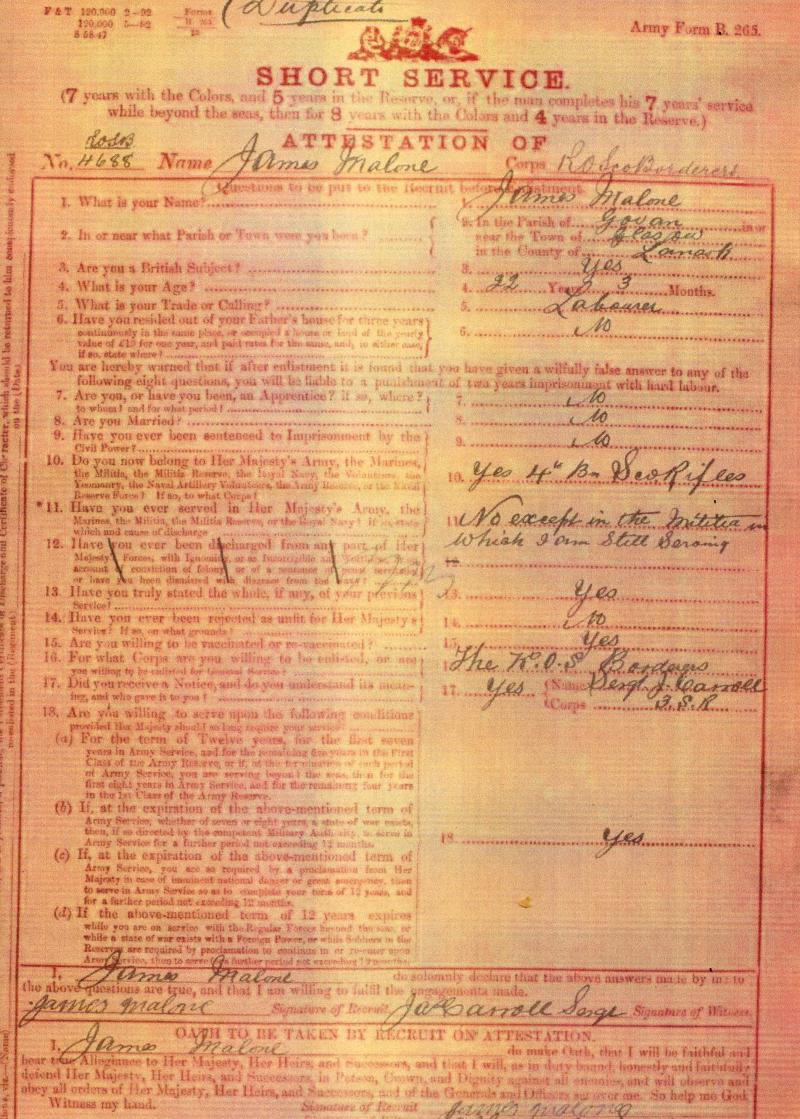 F & T 120,000 2-92
120,000 5-92
8 58.47
Forms
B. 265
(Duplicate
Army Form B. 265.
SHORT SERVICE.
(7 years with the Colors, and 5 years in the Reserve, or, if the man completes his 7 years' service
while beyond the seas, then for 8 years with the Colors and 4 years in the Reserve.)
ATTESTATION OF
No. 4688 Name James Malone Corps
Questions to be put to the Recruit before Enlistment.
1. What is your Name? James Malone
2. In or near what Parish or Town were you born? 2. In the Parish of Govan in or
near the Town of Glasgow
in the County of Lanark
3. Are you a British Subject? 3. Yes
4. What is your Age? 4. 22 Years 3 Months.
5. What is your Trade or Calling? 5. Labourer
6. Have you resided out of your Father's house for three years
continuously in the same place, or occupied a house or land of the yearly
value of £10 for one year, and paid rates for the same, and, in either case,
if so, state where? 6. No
You are hereby warned that if after enlistment it is found that you have given a wilfully false answer to any of the
following eight questions, you will be liable to a punishment of two years imprisonment with hard labour.
7. Are you, or have you been, an Apprentice? if so, where?
to whom? and for what period? 7. No
8. Are you Married? 8. No
9. Have you ever been sentenced to Imprisonment by the
Civil Power? 9. No
10. Do you now belong to Her Majesty's Army, the Marines,
the Militia, the Militia Reserve, the Royal Navy, the Volunteers, the
Yeomanry, the Naval Artillery Volunteers, the Army Reserve, or the Naval
Reserve Force? If so, to what Corps? 10. Yes 4th Bn Sco Rifles
*11. Have you ever served in Her Majesty's Army, the
Marines, the Militia, the Militia Reserve, or the Royal Navy? if so, state
which and cause of discharge 11. No except in the Militia in
which I am Still Serving
12. Have you ever been discharged from any part of Her
Majesty's Forces, with Ignominy, or as Incorrigible and
account conviction of felony or of a sentence of penal servitude
or have you been dismissed with disgrace from the Navy? 12
13. Have you truly stated the whole, if any, of your previous
Service? 13. Yes
14. Have you ever been rejected as unfit for Her Majesty's
Service? If so, on what grounds? 14. No
15. Are you willing to be vaccinated or re-vaccinated? 15. Yes
16. For what Corps are you willing to be enlisted, or are
you willing to be enlisted for General Service? The K.O.S Borderers
17. Did you receive a Notice, and do you understand its mean-
ing, and who gave it to you? 17. Yes Name Sergt J. Carroll
Corps
18. Are you willing to serve upon the following conditions
provided Her Majesty should so long require your service?
(a) For the term of Twelve years, for the first seven
years in Army Service, and for the remaining five years in the First
Class of the Army Reserve, or if, at the termination of such period
of Army Service, you are serving beyond the seas, then for the
first eight years in Army Service, and for the remaining four years
in the 1st Class of the Army Reserve.
(b) If, at the expiration of the above-mentioned term of
Army Service, whether of seven or eight years, a state of war exists,
then, if so directed by the competent Military Authority, to serve in
Army Service for a further period not exceeding 12 months.
18 Yes
(c) If, at the expiration of the above-mentioned term of
Army Service, you are so required by a proclamation from Her
Majesty in case of imminent national danger or great emergency, then
to serve in Army Service so as to complete your term of 12 years, and
for a further period not exceeding 12 months.
(d) If the above-mentioned term of 12 years expires
while you are on service with the Regular Forces beyond the seas, or
while a state of war exists with a Foreign Power, or while Soldiers in the
Reserve are required by proclamation to continue in or re-enter upon
Army Service, then to serve for a further period not exceeding 12 months.
I, James Malone do solemnly declare that the above answers made by me to
the above questions are true, and that I am willing to fulfil the engagements made.
James Malone Signature of Recruit. Jas Carroll Sergt Signature of Witness.
OATH TO BE TAKEN BY RECRUIT ON ATTESTATION.
I, James Malone do make Oath, that I will be faithful and
bear true Allegiance to Her Majesty, Her Heirs, and Successors, and that I will, as in duty bound, honestly and faithfully
defend Her Majesty, Her Heirs, and Successors, in Person, Crown, and Dignity against all enemies, and will observe and
obey all orders of Her Majesty, Her Heirs, and Successors, and of the Generals and Officers set over me. So help me God
Witness my hand. Signature of Recruit James Malone